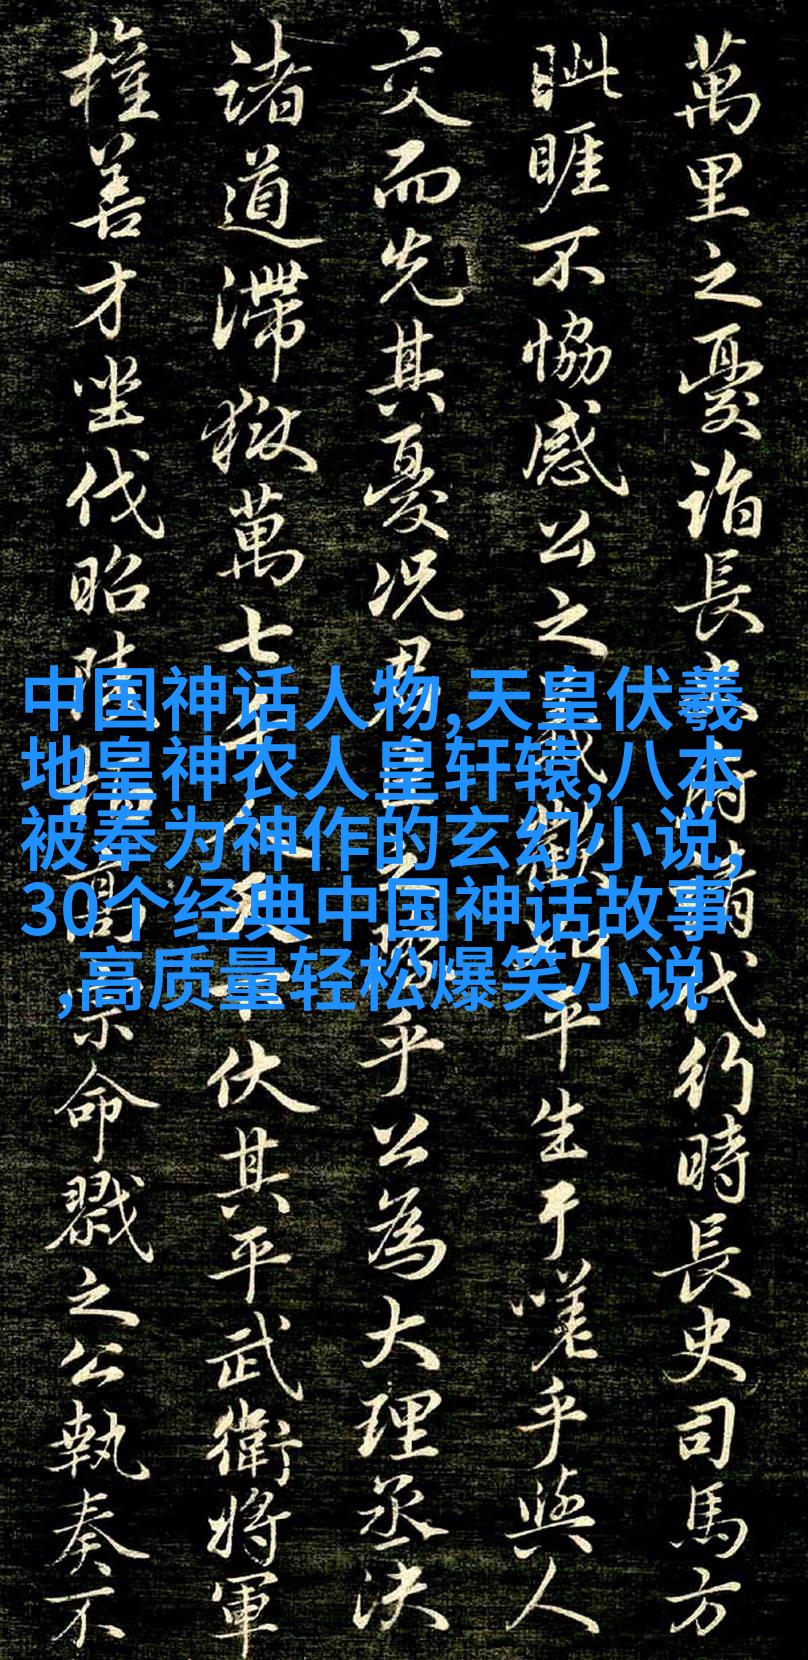 萬里之憂詣長史府請代行時長史司馬方
眦睚不協感公之義歡如平生于嗟乎與人
交而先其憂况君臣之際乎公為大理丞決
諸道滯獄萬七千人天下伏其平武衛將軍
權善才坐伐昭陵柏高宗命戮之公執奏不
中国神话人物,天皇伏羲
地皇神农人皇轩辕,八本
被奉为神作的玄幻小说,
30个经典中国神话故事
,高质量轻松爆笑小说